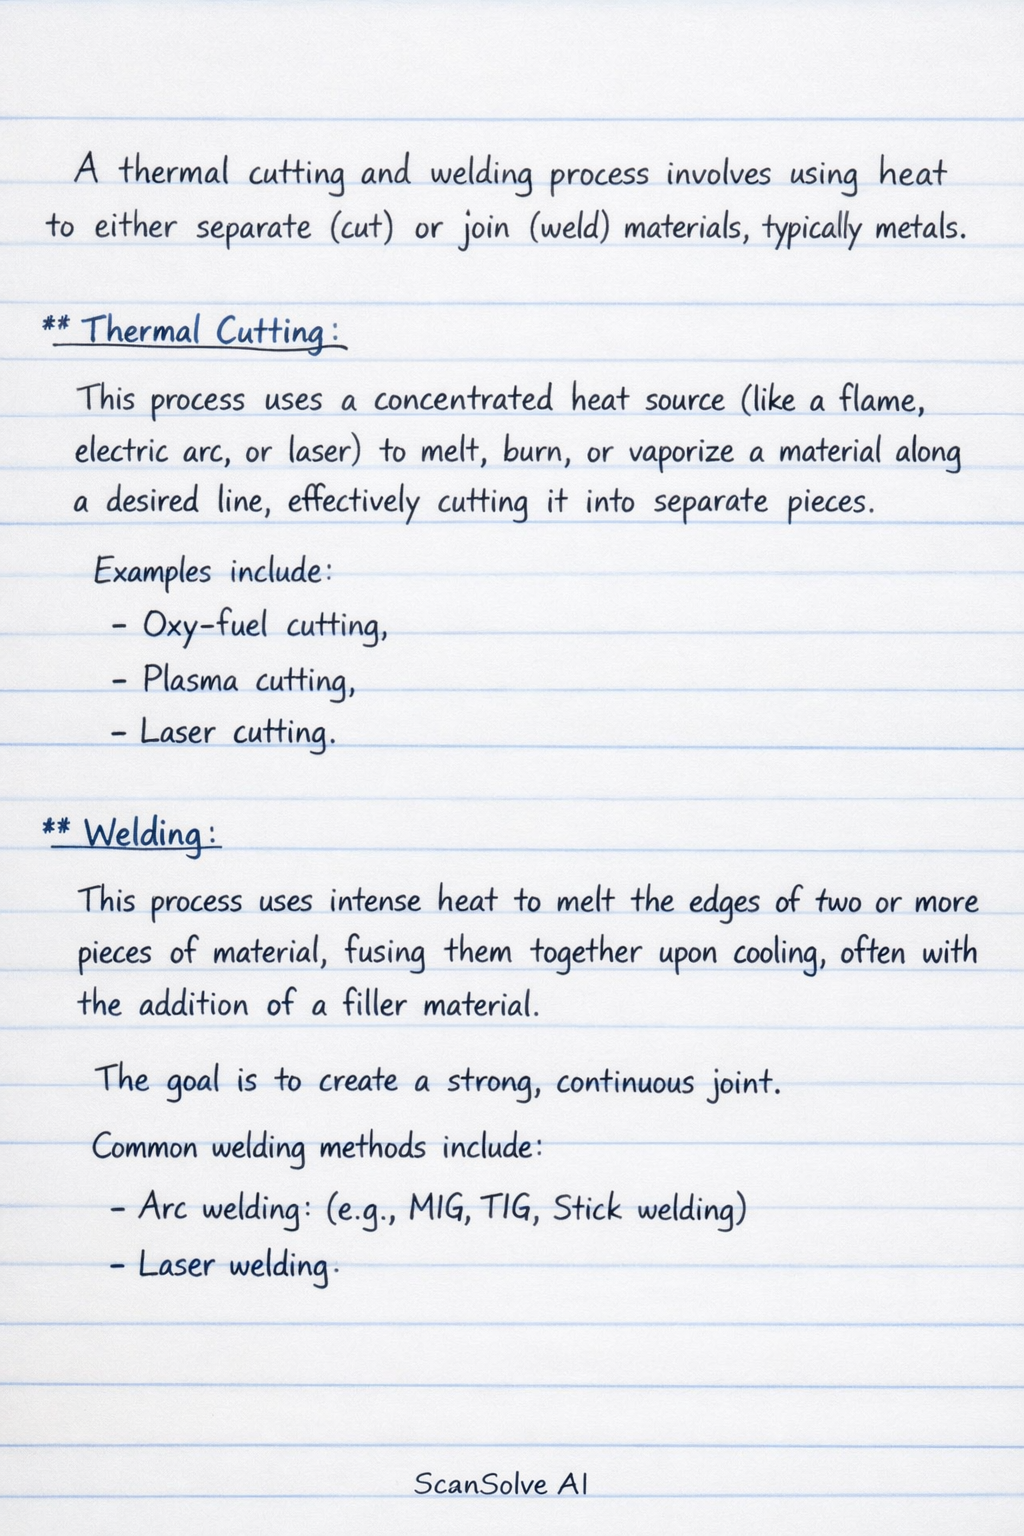 A thermal cutting and welding process involves using heat
to either separate (cut) or join (weld) materials, typically metals.
** Thermal Cutting:
This process uses a concentrated heat source (like a flame,
electric arc, or laser) to melt, burn, or vaporize a material along
a desired line, effectively cutting it into separate pieces.
Examples include:
- Oxy-fuel cutting,
- Plasma cutting,
- Laser cutting.
** Welding:
This process uses intense heat to melt the edges of two or more
pieces of material, fusing them together upon cooling, often with
the addition of a filler material.
The goal is to create a strong, continuous joint.
Common welding methods include:
- Arc welding: (e.g., MIG, TIG, Stick welding)
- Laser welding.
ScanSolve AI